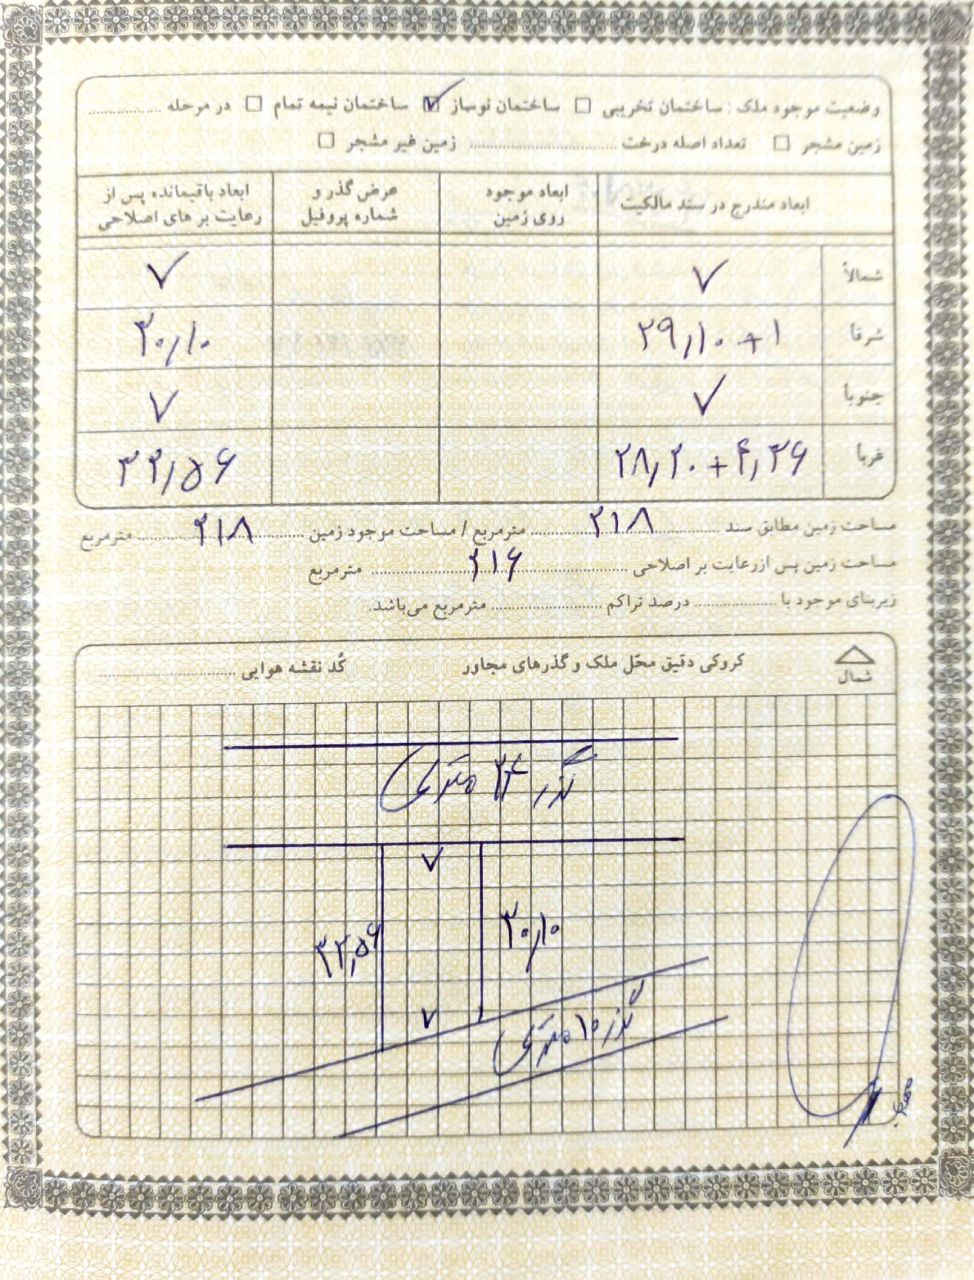 وضعیت موجود ملک : ساختمان تخریبی □ ساختمان نوساز ☑ ساختمان نیمه تمام □ در مرحله ..............
زمین مشجر □ تعداد اصله درخت ........................ زمین غیر مشجر □
ابعاد مندرج در سند مالکیت ابعاد موجود روی زمین عرض گذر و شماره پروفیل ابعاد باقیمانده پس از رعایت بر های اصلاحی
شمالاً ۷ ۷
شرقاً ۲۹٫۱۰+۱ ۳۰٫۱۰
جنوباً ۷ ۷
غرباً ۲۸٫۲۰+۴٫۳۶ ۳۲٫۵۶
مساحت زمین مطابق سند ۲۱۸ مترمربع / مساحت موجود زمین ۲۱۸ مترمربع
مساحت زمین پس از رعایت بر اصلاحی ۲۱۶ مترمربع
زیربنای موجود با .............. درصد تراکم .................. مترمربع می‌باشد.
شمال
کروکی دقیق محل ملک و گذرهای مجاور کُد نقشه هوایی ......................
گذر ۲۴ متری
۷
۳۲٫۵۶
۳۰٫۱۰
۷
گذر ۱۰ متری